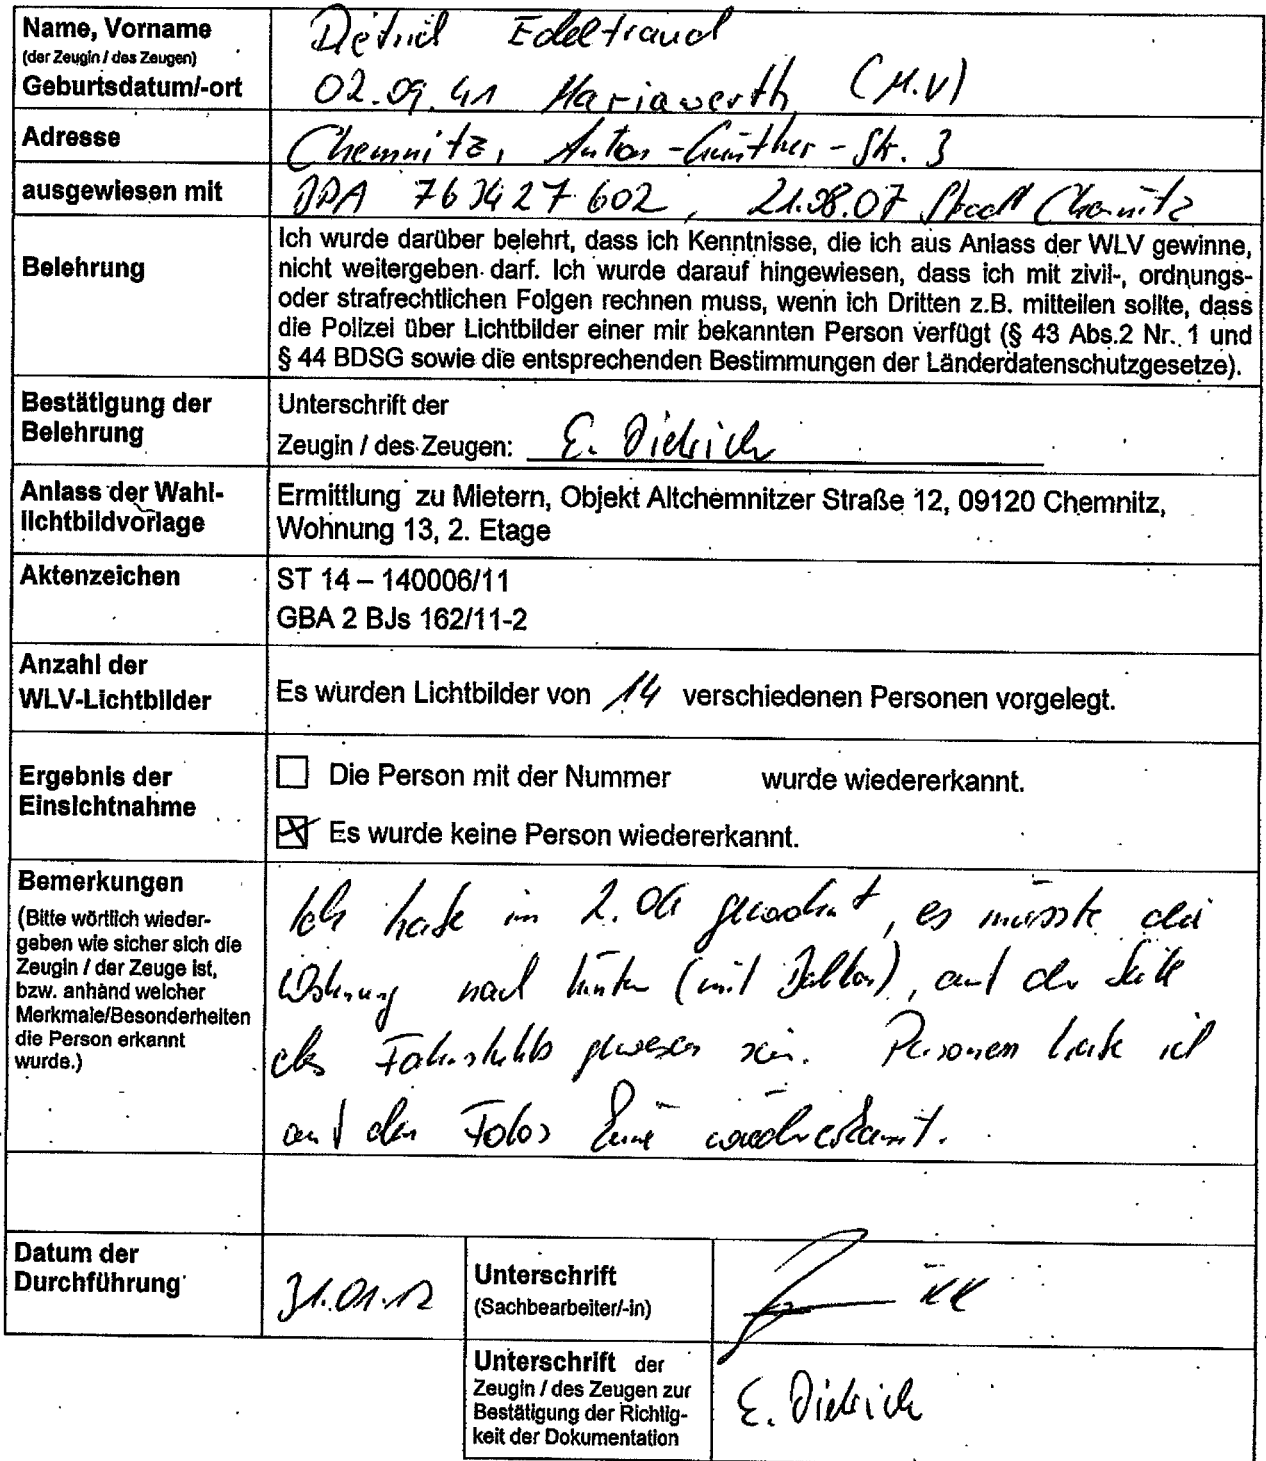 Name, Vorname
(der Zeugin / des Zeugen)
Dietrich Edeltraud
Geburtsdatum/-ort
02.09.41 Mariawerth (M.V)
Adresse
Chemnitz, Anton-Günther-Str. 3
ausgewiesen mit
BPA 763427602, 21.08.07 Stadt Chemnitz
Belehrung
Ich wurde darüber belehrt, dass ich Kenntnisse, die ich aus Anlass der WLV gewinne,
nicht weitergeben darf. Ich wurde darauf hingewiesen, dass ich mit zivil-, ordnungs-
oder strafrechtlichen Folgen rechnen muss, wenn ich Dritten z.B. mitteilen sollte, dass
die Polizei über Lichtbilder einer mir bekannten Person verfügt (§ 43 Abs.2 Nr. 1 und
§ 44 BDSG sowie die entsprechenden Bestimmungen der Länderdatenschutzgesetze).
Bestätigung der
Belehrung
Unterschrift der
Zeugin / des Zeugen: E. Dietrich
Anlass der Wahl-
lichtbildvorlage
Ermittlung zu Mietern, Objekt Altchemnitzer Straße 12, 09120 Chemnitz,
Wohnung 13, 2. Etage
Aktenzeichen
ST 14 – 140006/11
GBA 2 BJs 162/11-2
Anzahl der
WLV-Lichtbilder
Es wurden Lichtbilder von 14 verschiedenen Personen vorgelegt.
Ergebnis der
Einsichtnahme
Die Person mit der Nummer wurde wiedererkannt.
Es wurde keine Person wiedererkannt.
Bemerkungen
(Bitte wörtlich wieder-
geben wie sicher sich die
Zeugin / der Zeuge ist,
bzw. anhand welcher
Merkmale/Besonderheiten
die Person erkannt
wurde.)
Ich habe im 2. OG gewohnt, es müsste die
Wohnung nach hinten (mit Balkon), auf der Seite
des Fahrstuhls gewesen sein. Personen habe ich
auf den Fotos keine wiedererkannt.
Datum der
Durchführung
31.01.12
Unterschrift
(Sachbearbeiter/-in)
KK
Unterschrift der
Zeugin / des Zeugen zur
Bestätigung der Richtig-
keit der Dokumentation
E. Dietrich